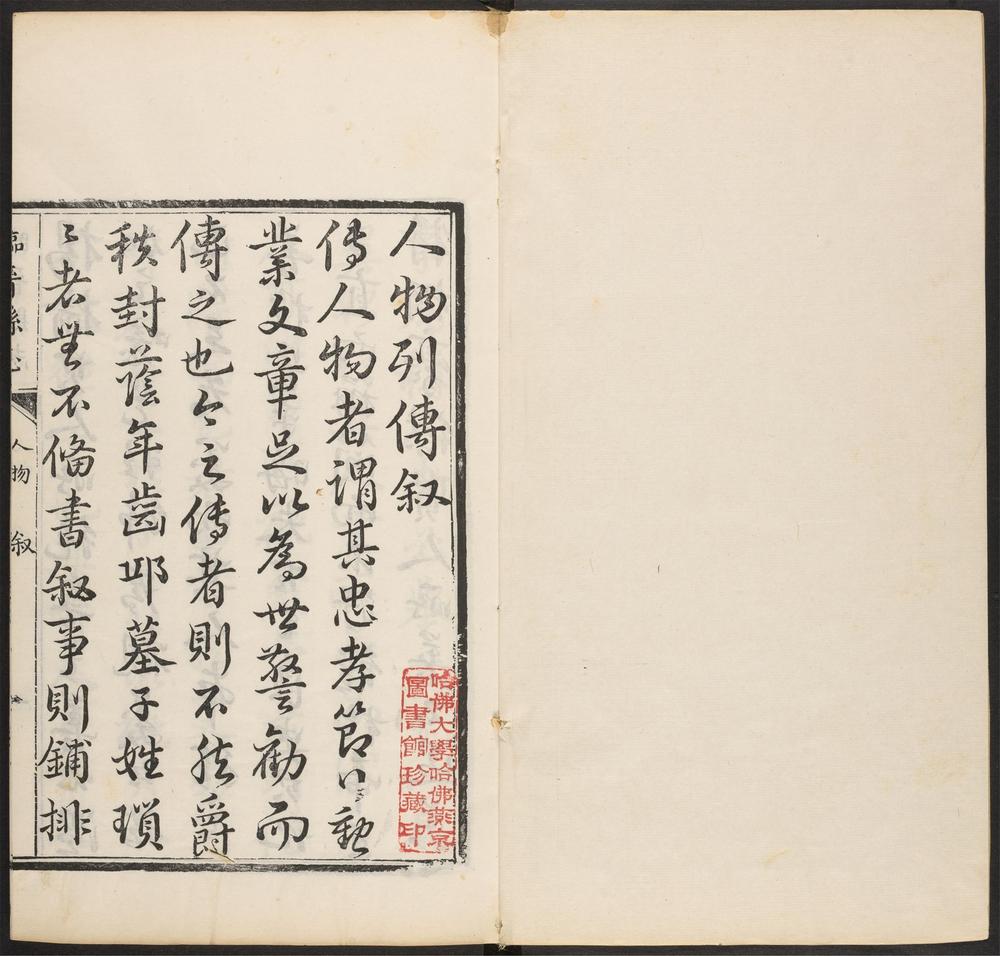 人物列傳叙
传人物者謂其忠孝節以勳
業文章足以為世警勸而
傳之也今之传者則不然爵
秩封蔭年齒邱墓子姓瑣
〻者無不偹書叙事則鋪排
人物 叙
哈佛大學哈佛燕京
圖書館珍藏印